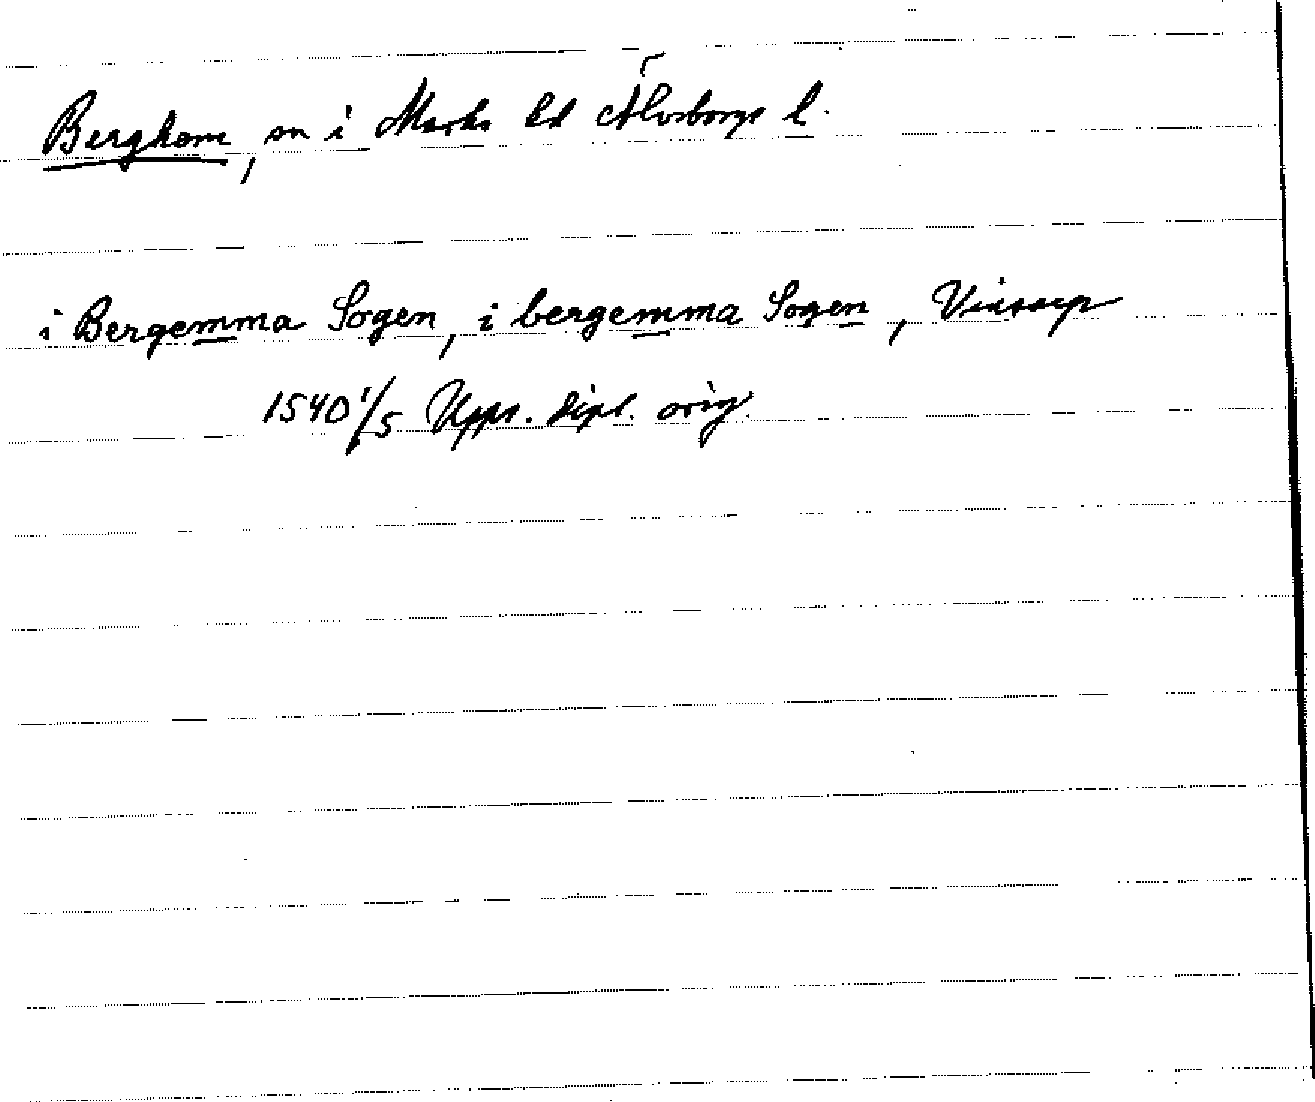 Berghem, sn i Marks hd Älvsborgs l.
i Bergemma Sogen, i bergemma Sogen,
1540 1/5 Upps. dipl. orig.